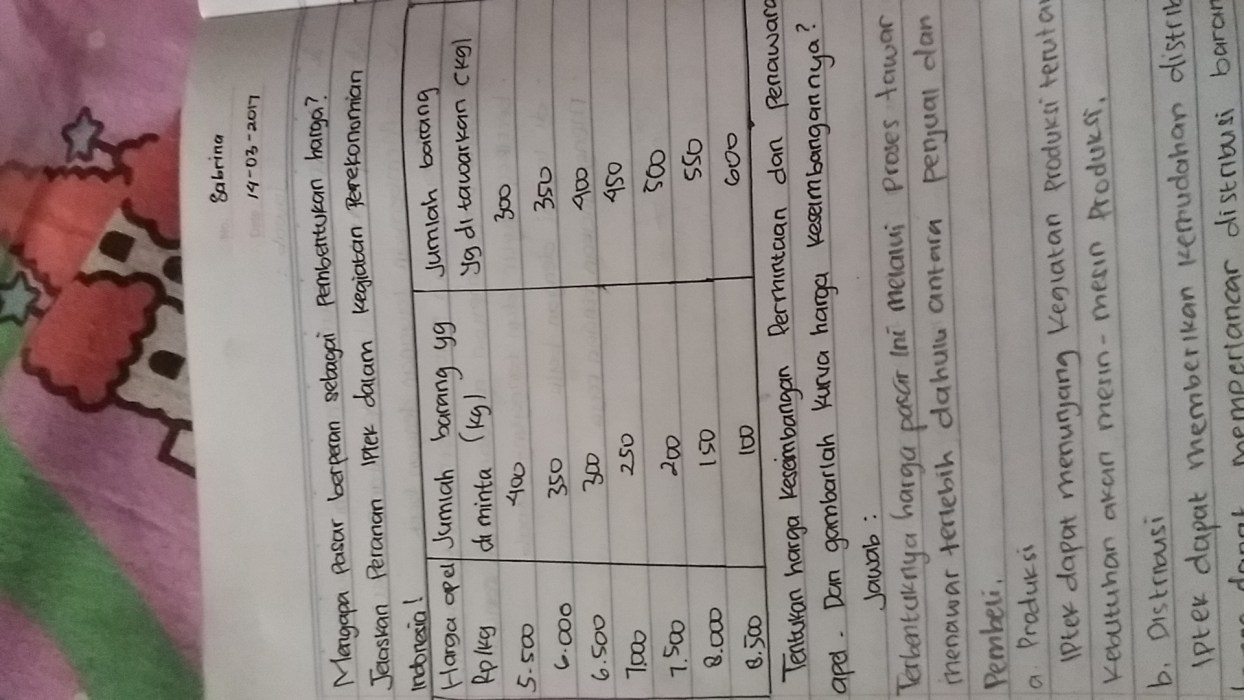 Sabrina
14-03-2017
Mengapa pasar berperan sebagai Pembentukan harga?
Jelaskan Peranan Iptek dalam kegiatan Perekonomian
Indonesia!
Harga apel Jumlah barang yg Jumlah barang
Rp/kg di minta (kg) yg di tawarkan (kg)
5.500 400 300
6.000 350 350
6.500 300 400
7.000 250 450
7.500 200 500
8.000 150 550
8.500 100 600
Tentukan harga keseimbangan Permintaan dan penawara
apel. Dan gambarlah kurva harga keseimbangannya?
Jawab :
Terbentuknya harga pasar ini melalui proses tawar
menawar terlebih dahulu antara penjual dan
Pembeli.
a. Produksi
Iptek dapat menunjang kegiatan produksi teruta
kebutuhan akan mesin-mesin produksi.
b. Distribusi
Iptek dapat memberikan kemudahan distrib
dapat memperlancar distribusi baran